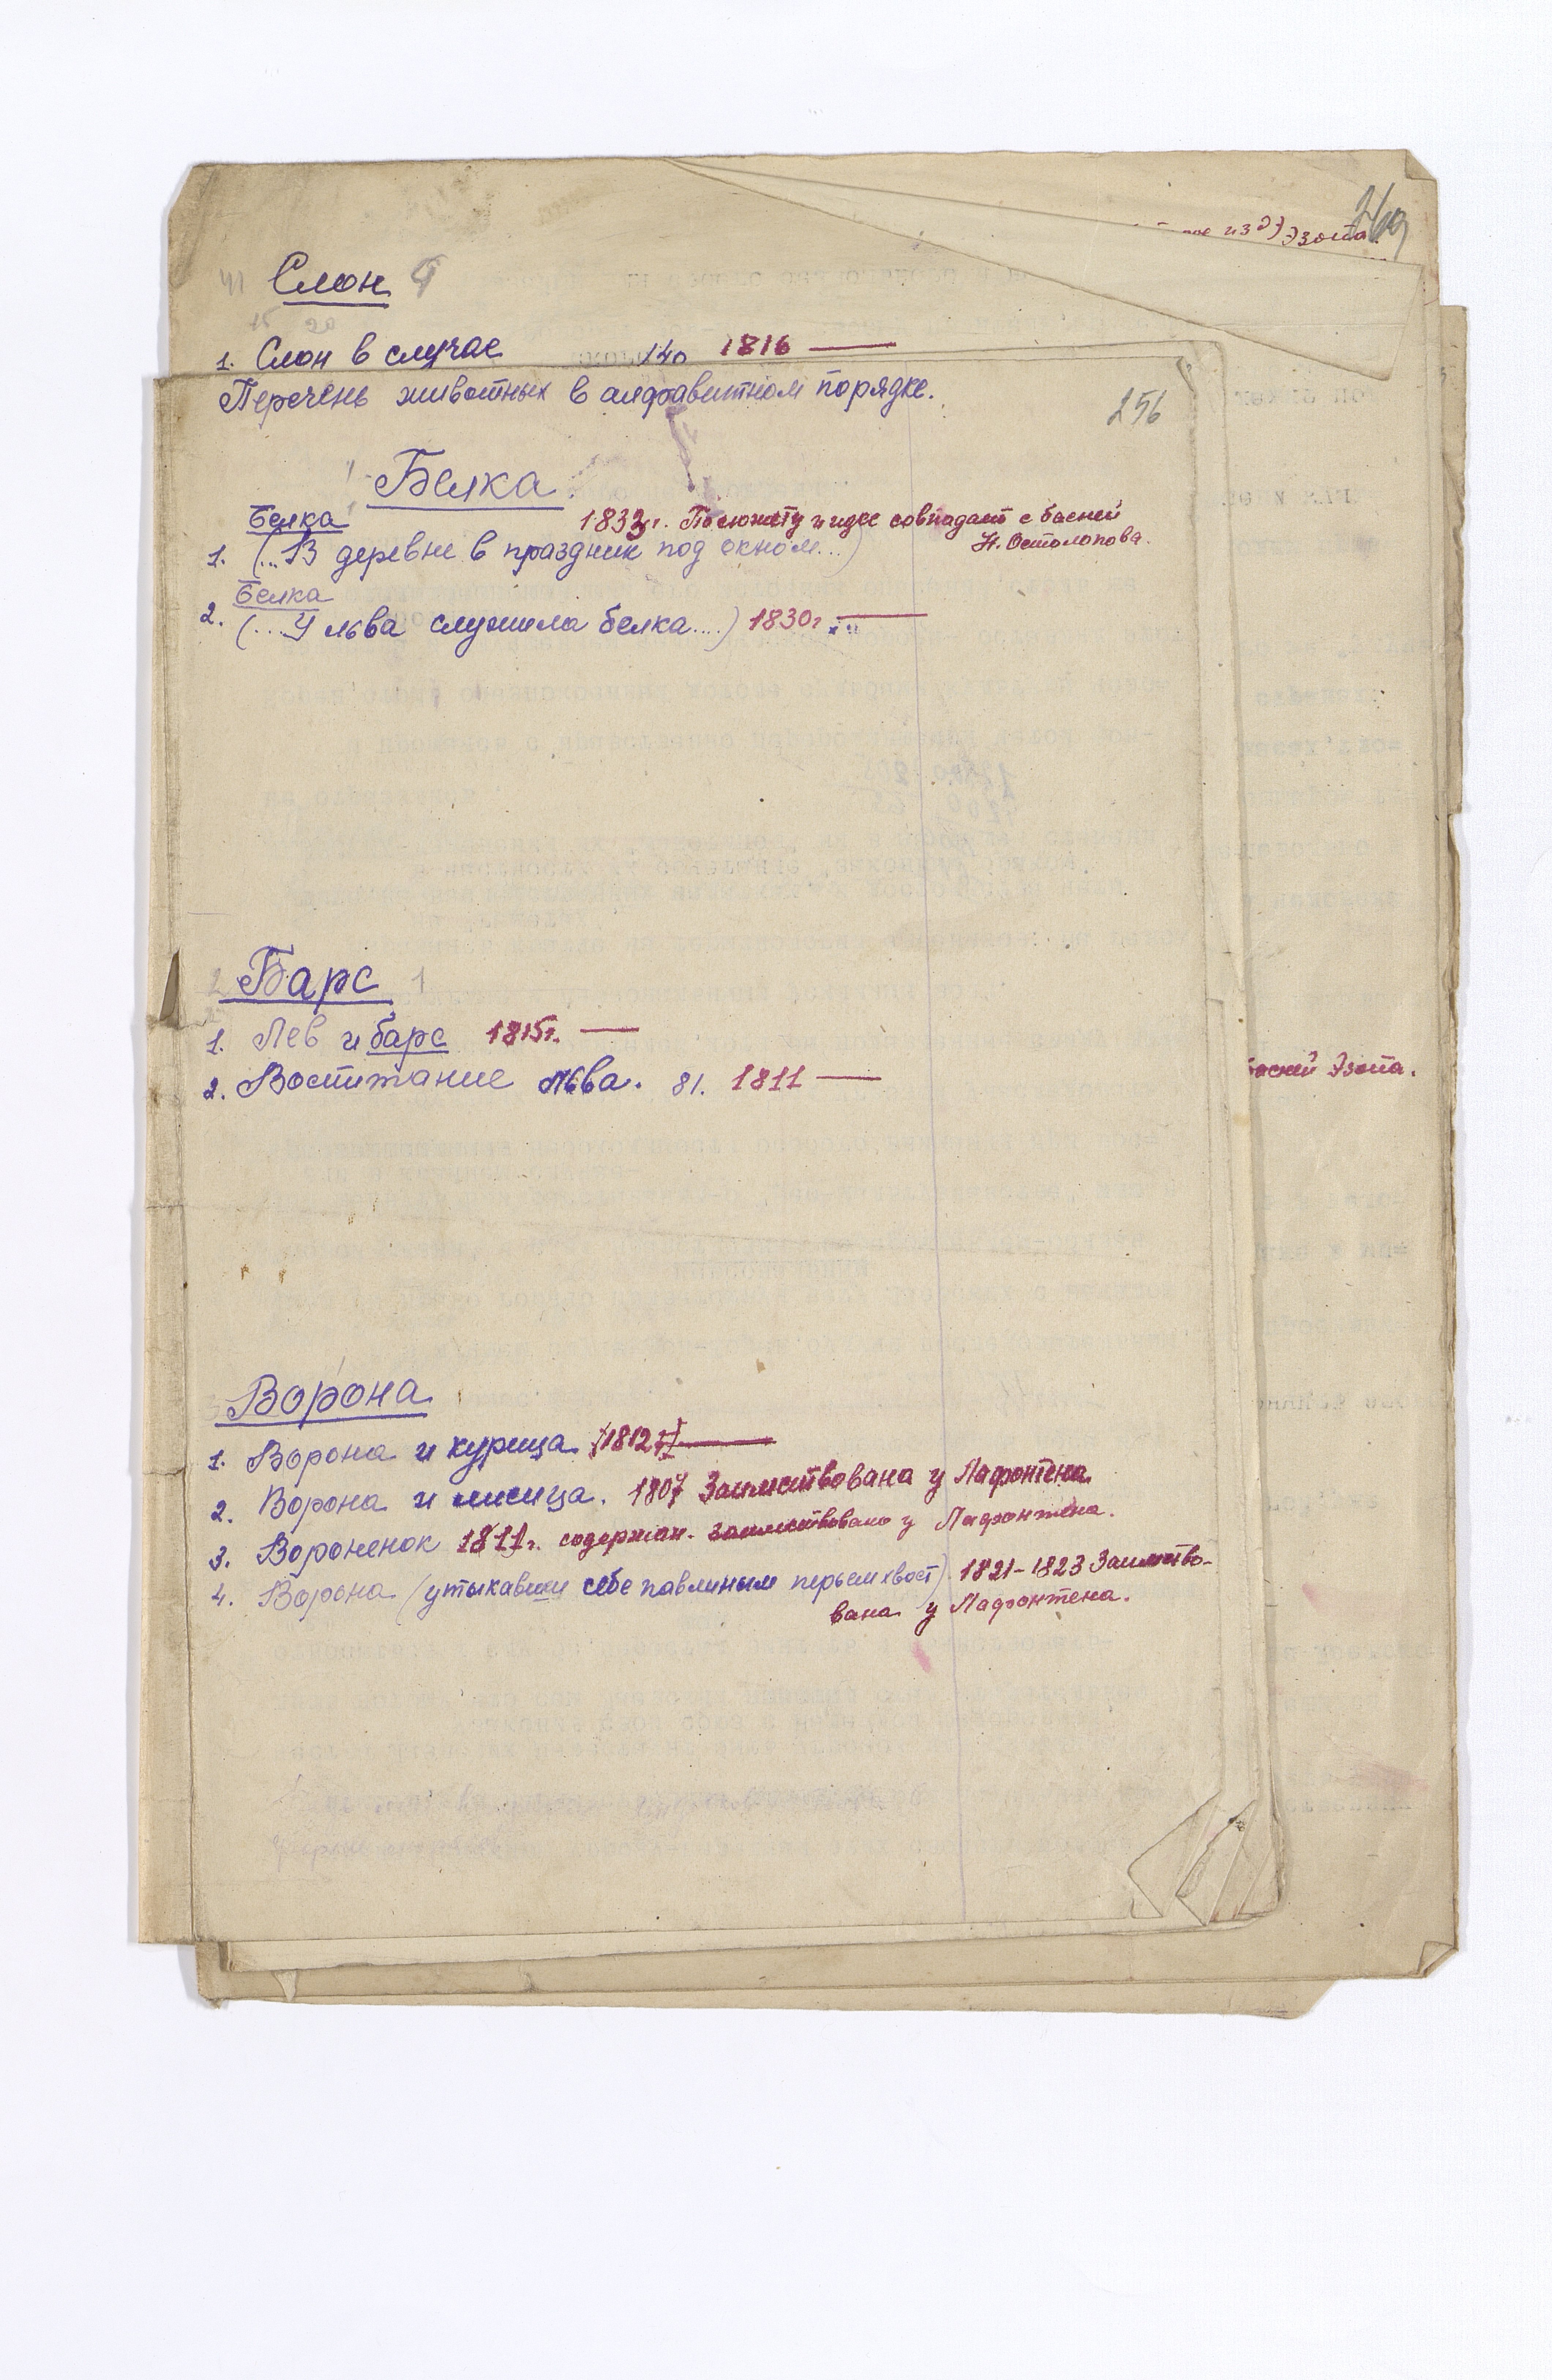 269
из Эзопа.
41 Слон 9
15 20
1. Слон в случае 140 1816 —
Перечень животных в алфавитном порядке.
256
Белка.
Белка 1833г. По сюжету и идее совпадает с басней
Н. Остолопова.
1. (...В деревне в праздник под окном...)
Белка
2. (...У льва служила белка....) 1830г. —
2 Барс 1
1. Лев и барс 1815г. —
2. Воспитание льва. 81. 1811 —
басней Эзопа.
Ворона
1. Ворона и курица. 1812г. —
2. Ворона и лисица. 1807 Заимствована у Лафонтена
3. Вороненок 1811г. содержан. заимствовано у Лафонтена.
4. Ворона (утыкавши себе павлиным перьем хвост). 1821-1823 Заимство-
вана у Лафонтена.